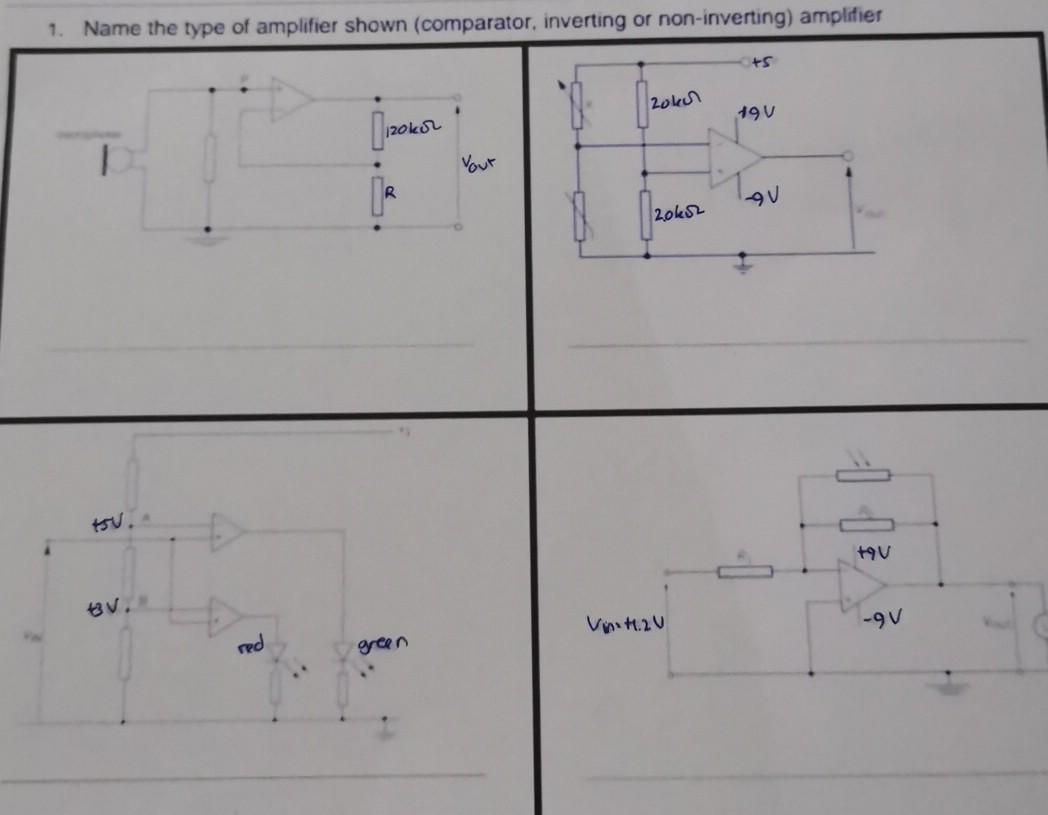 1. Name the type of amplifier shown (comparator, inverting or non-inverting) amplifier
P
microphone
120kΩ
R
Vout
+5
20kΩ
+9V
-9V
20kΩ
+5V
A
+3V
B
red
green
+9V
Vin=+1.2V
-9V